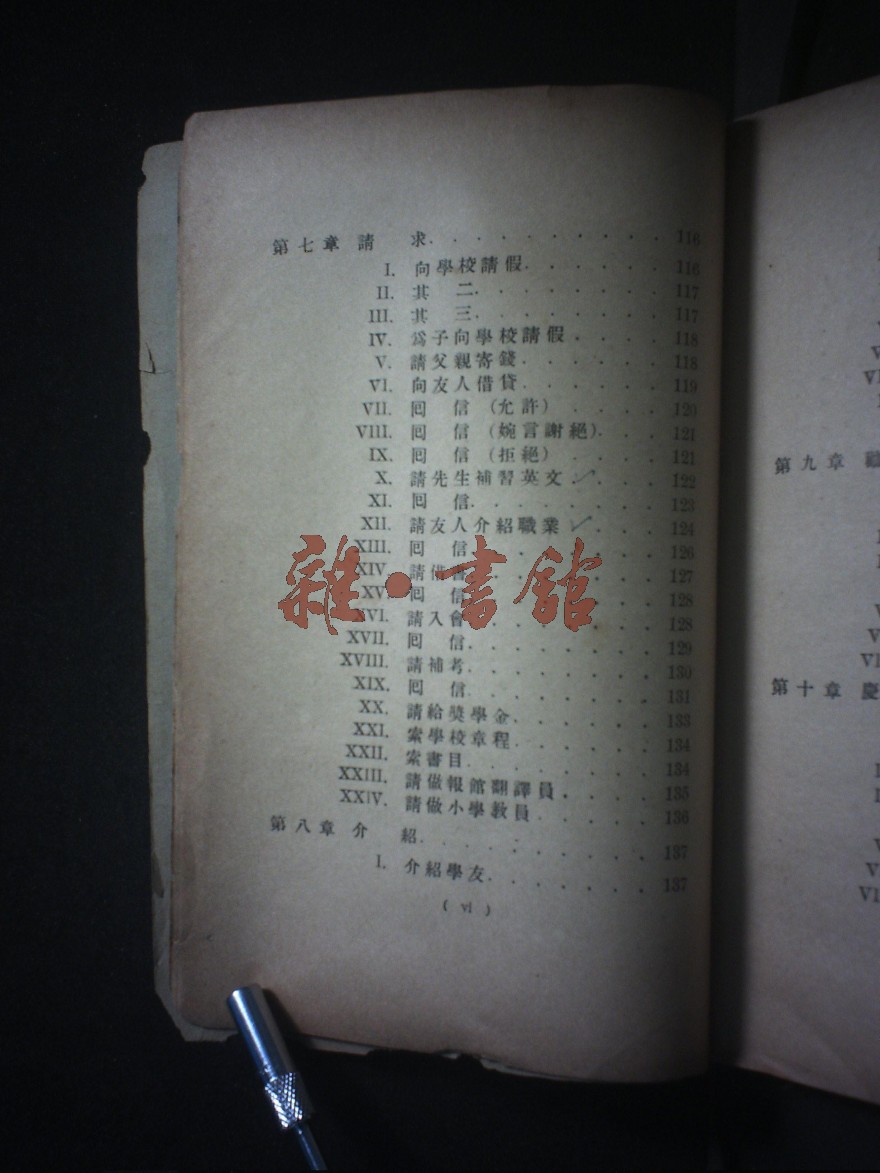 第七章 請 求. . . . . . . . . . 116
I. 向學校請假. . . . . . 116
II. 其 二. . . . . . . . 117
III. 其 三. . . . . . . . 117
IV. 爲子向學校請假 . . . . 118
V. 請父親寄錢. . . . . . 118
VI. 向友人借貸. . . . . . 119
VII. 囘 信 (允許) . . . . 120
VIII. 囘 信 (婉言謝絕). . . 121
IX. 囘 信 (拒絕) . . . . 121
X. 請先生補習英文 ✓. . . 122
XI. 囘 信. . . . . . . . 123
XII. 請友人介紹職業 ✓ . . . 124
XIII. 囘 信. . . . . . . . 126
XIV. 請借書. . . . . . . 127
XV. 囘 信. . . . . . . . 128
XVI. 請入會. . . . . . . 128
XVII. 囘 信. . . . . . . . 129
XVIII. 請補考. . . . . . . 130
XIX. 囘 信. . . . . . . . 131
XX. 請給獎學金. . . . . . 133
XXI. 索學校章程. . . . . . 134
XXII. 索書目. . . . . . . 134
XXIII. 請做報館翻譯員. . . . 135
XXIV. 請做小學教員. . . . . 136
第八章 介 紹. . . . . . . . . . 137
I. 介紹學友. . . . . . . 137
( vi )
雜·書館
第九章
第十章 慶